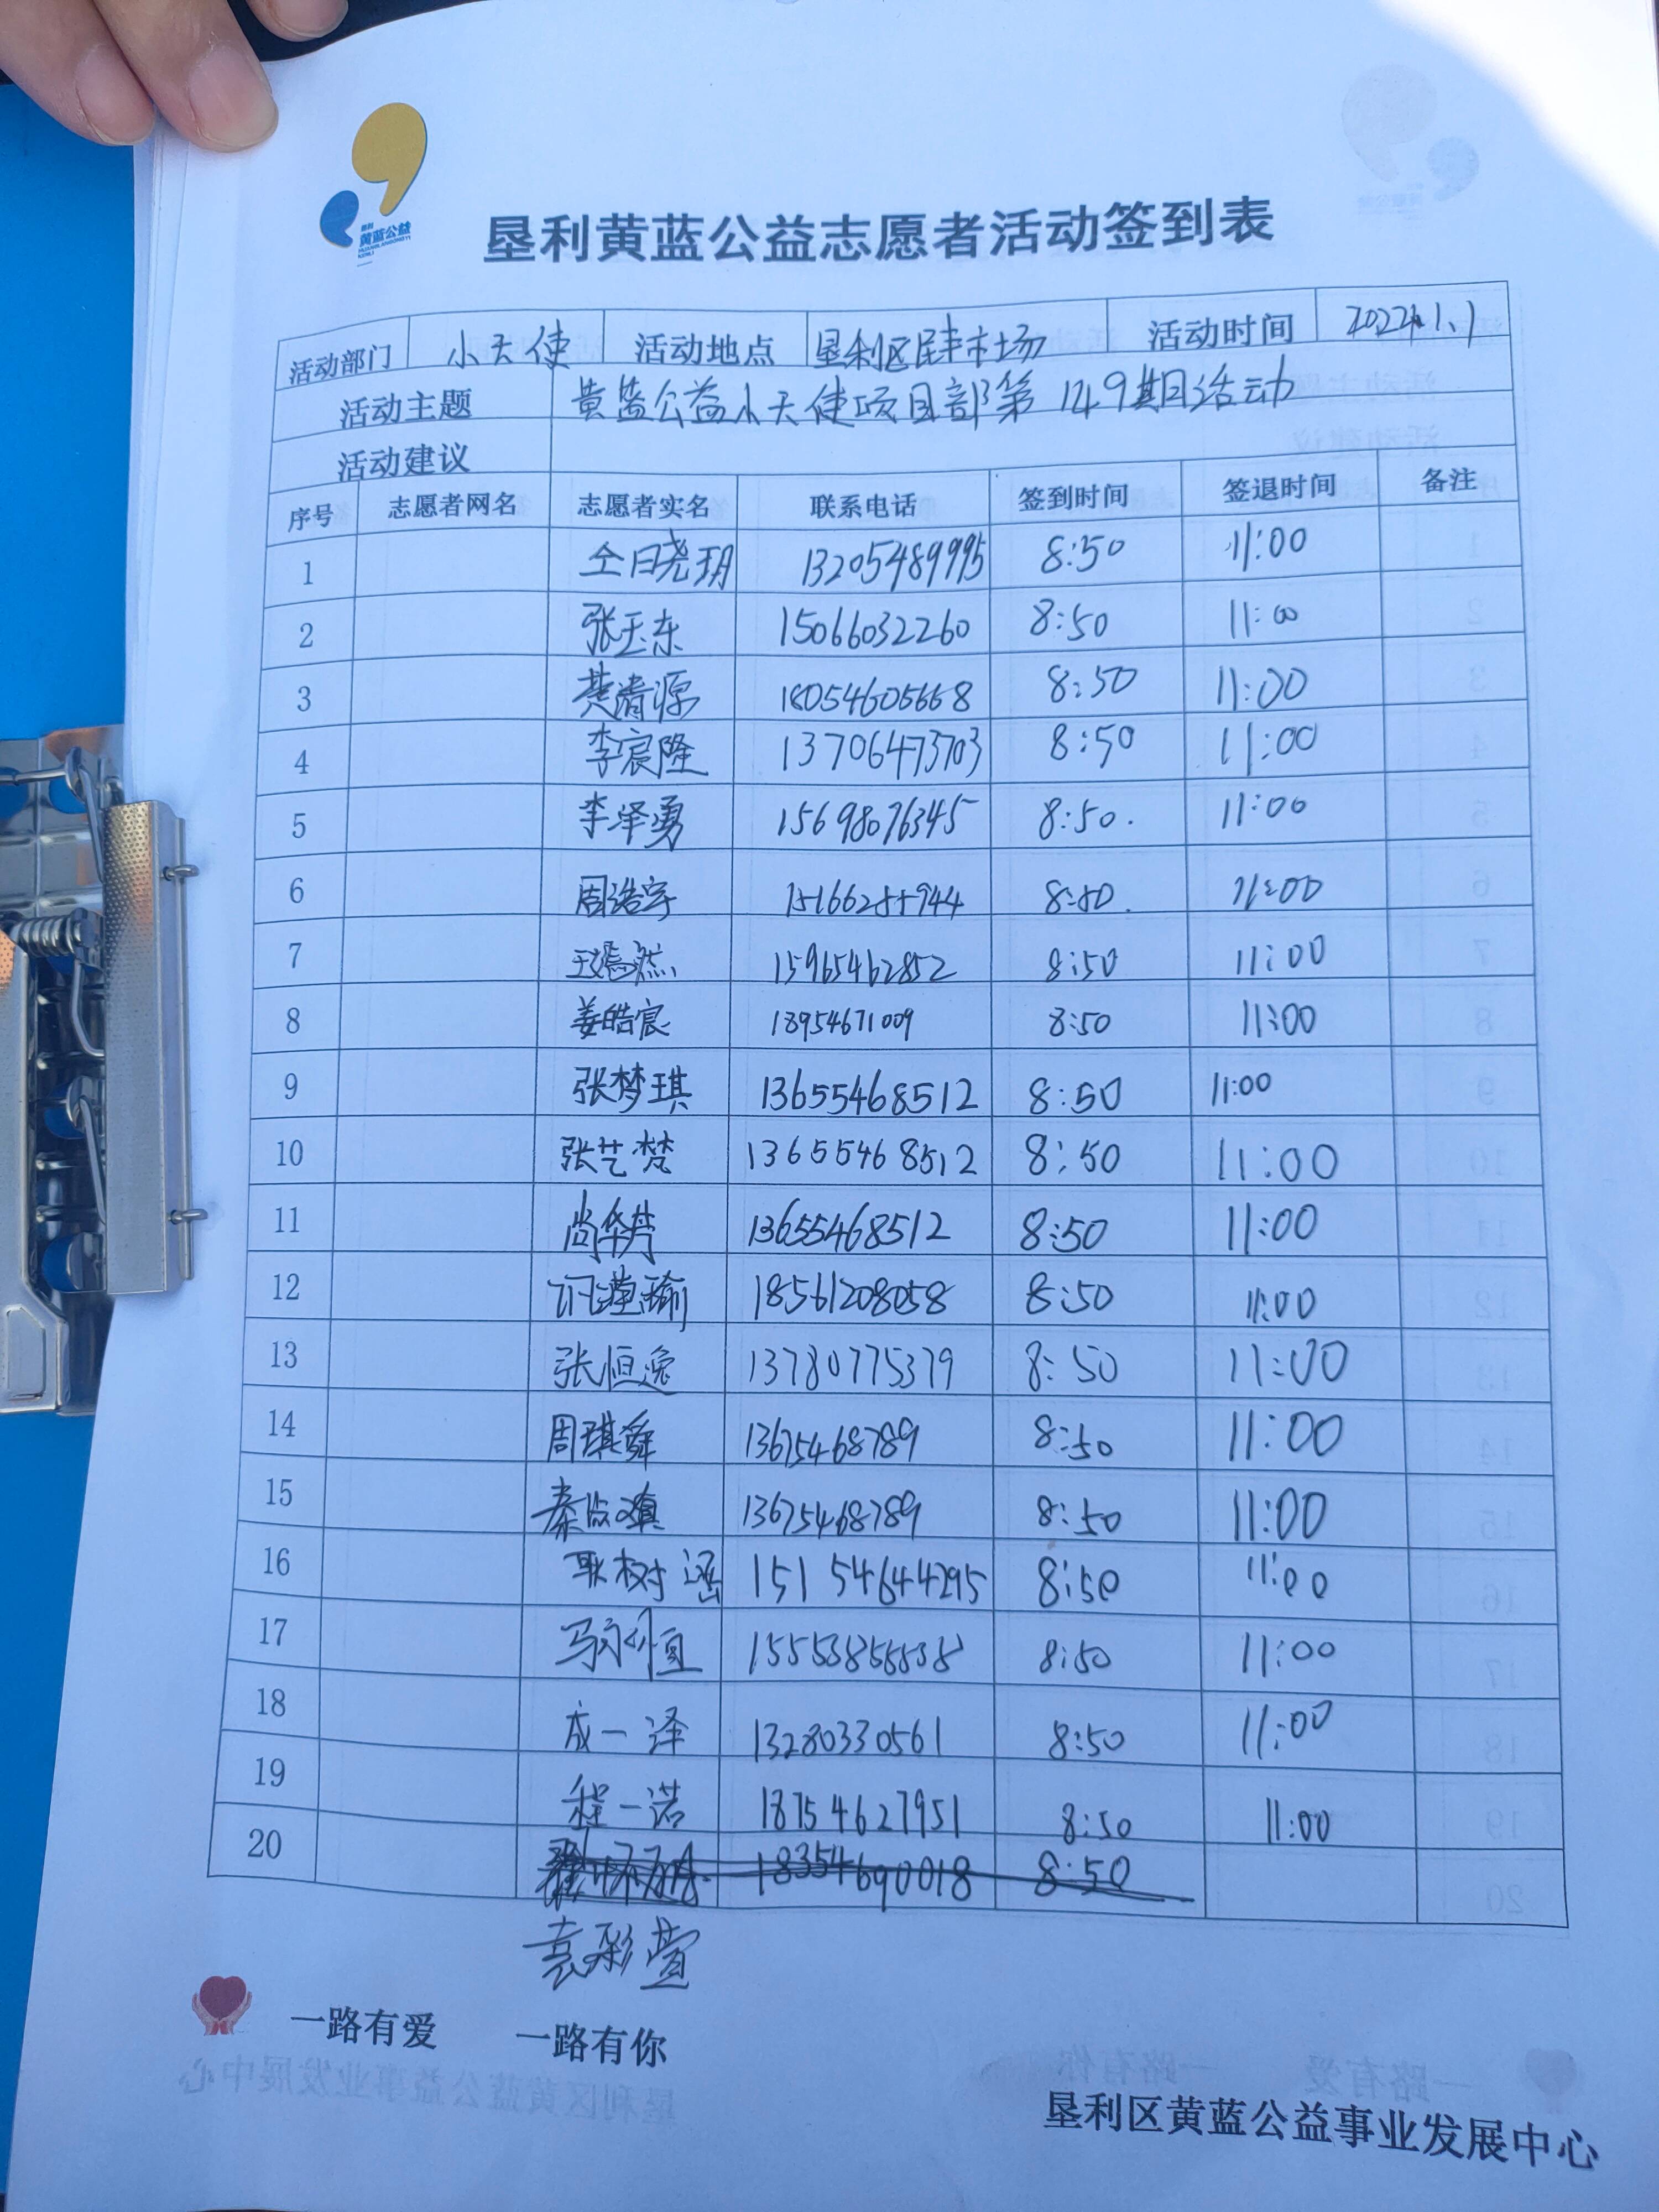 垦利
黄蓝公益
垦利黄蓝公益志愿者活动签到表
活动部门 小天使 活动地点 垦利区民丰市场 活动时间 2022.1.1
活动主题 黄蓝公益小天使项目部第149期活动
活动建议
序号 志愿者网名 志愿者实名 联系电话 签到时间 签退时间 备注
1 仝日尧玥 13205489995 8:50 11:00
2 张玉东 15066032260 8:50 11:00
3 黄清源 18054605668 8:50 11:00
4 李宸隆 13706473703 8:50 11:00
5 李泽勇 15698076345 8:50. 11:00
6 周浩宇 15166255944 8:50. 11:00
7 王嫣然 15965462852 8:50 11:00
8 姜皓宸 18954671009 8:50 11:00
9 张梦琪 13655468512 8:50 11:00
10 张艺梵 13655468512 8:50 11:00
11 尚华丹 13655468512 8:50 11:00
12 18561208058 8:50 11:00
13 张恒逸 13780775379 8:50 11:00
14 周琪舜 13675468789 8:50 11:00
15 13675468789 8:50 11:00
16 耿树谣 151 54644295 8:50 11:00
17 马永恒 15553855538 8:50 11:00
18 成一泽 13280330561 8:50 11:00
19 程一诺 18754627951 8:50 11:00
20 18354690018 8:50
袁彩萱
一路有爱 一路有你
垦利区黄蓝公益事业发展中心